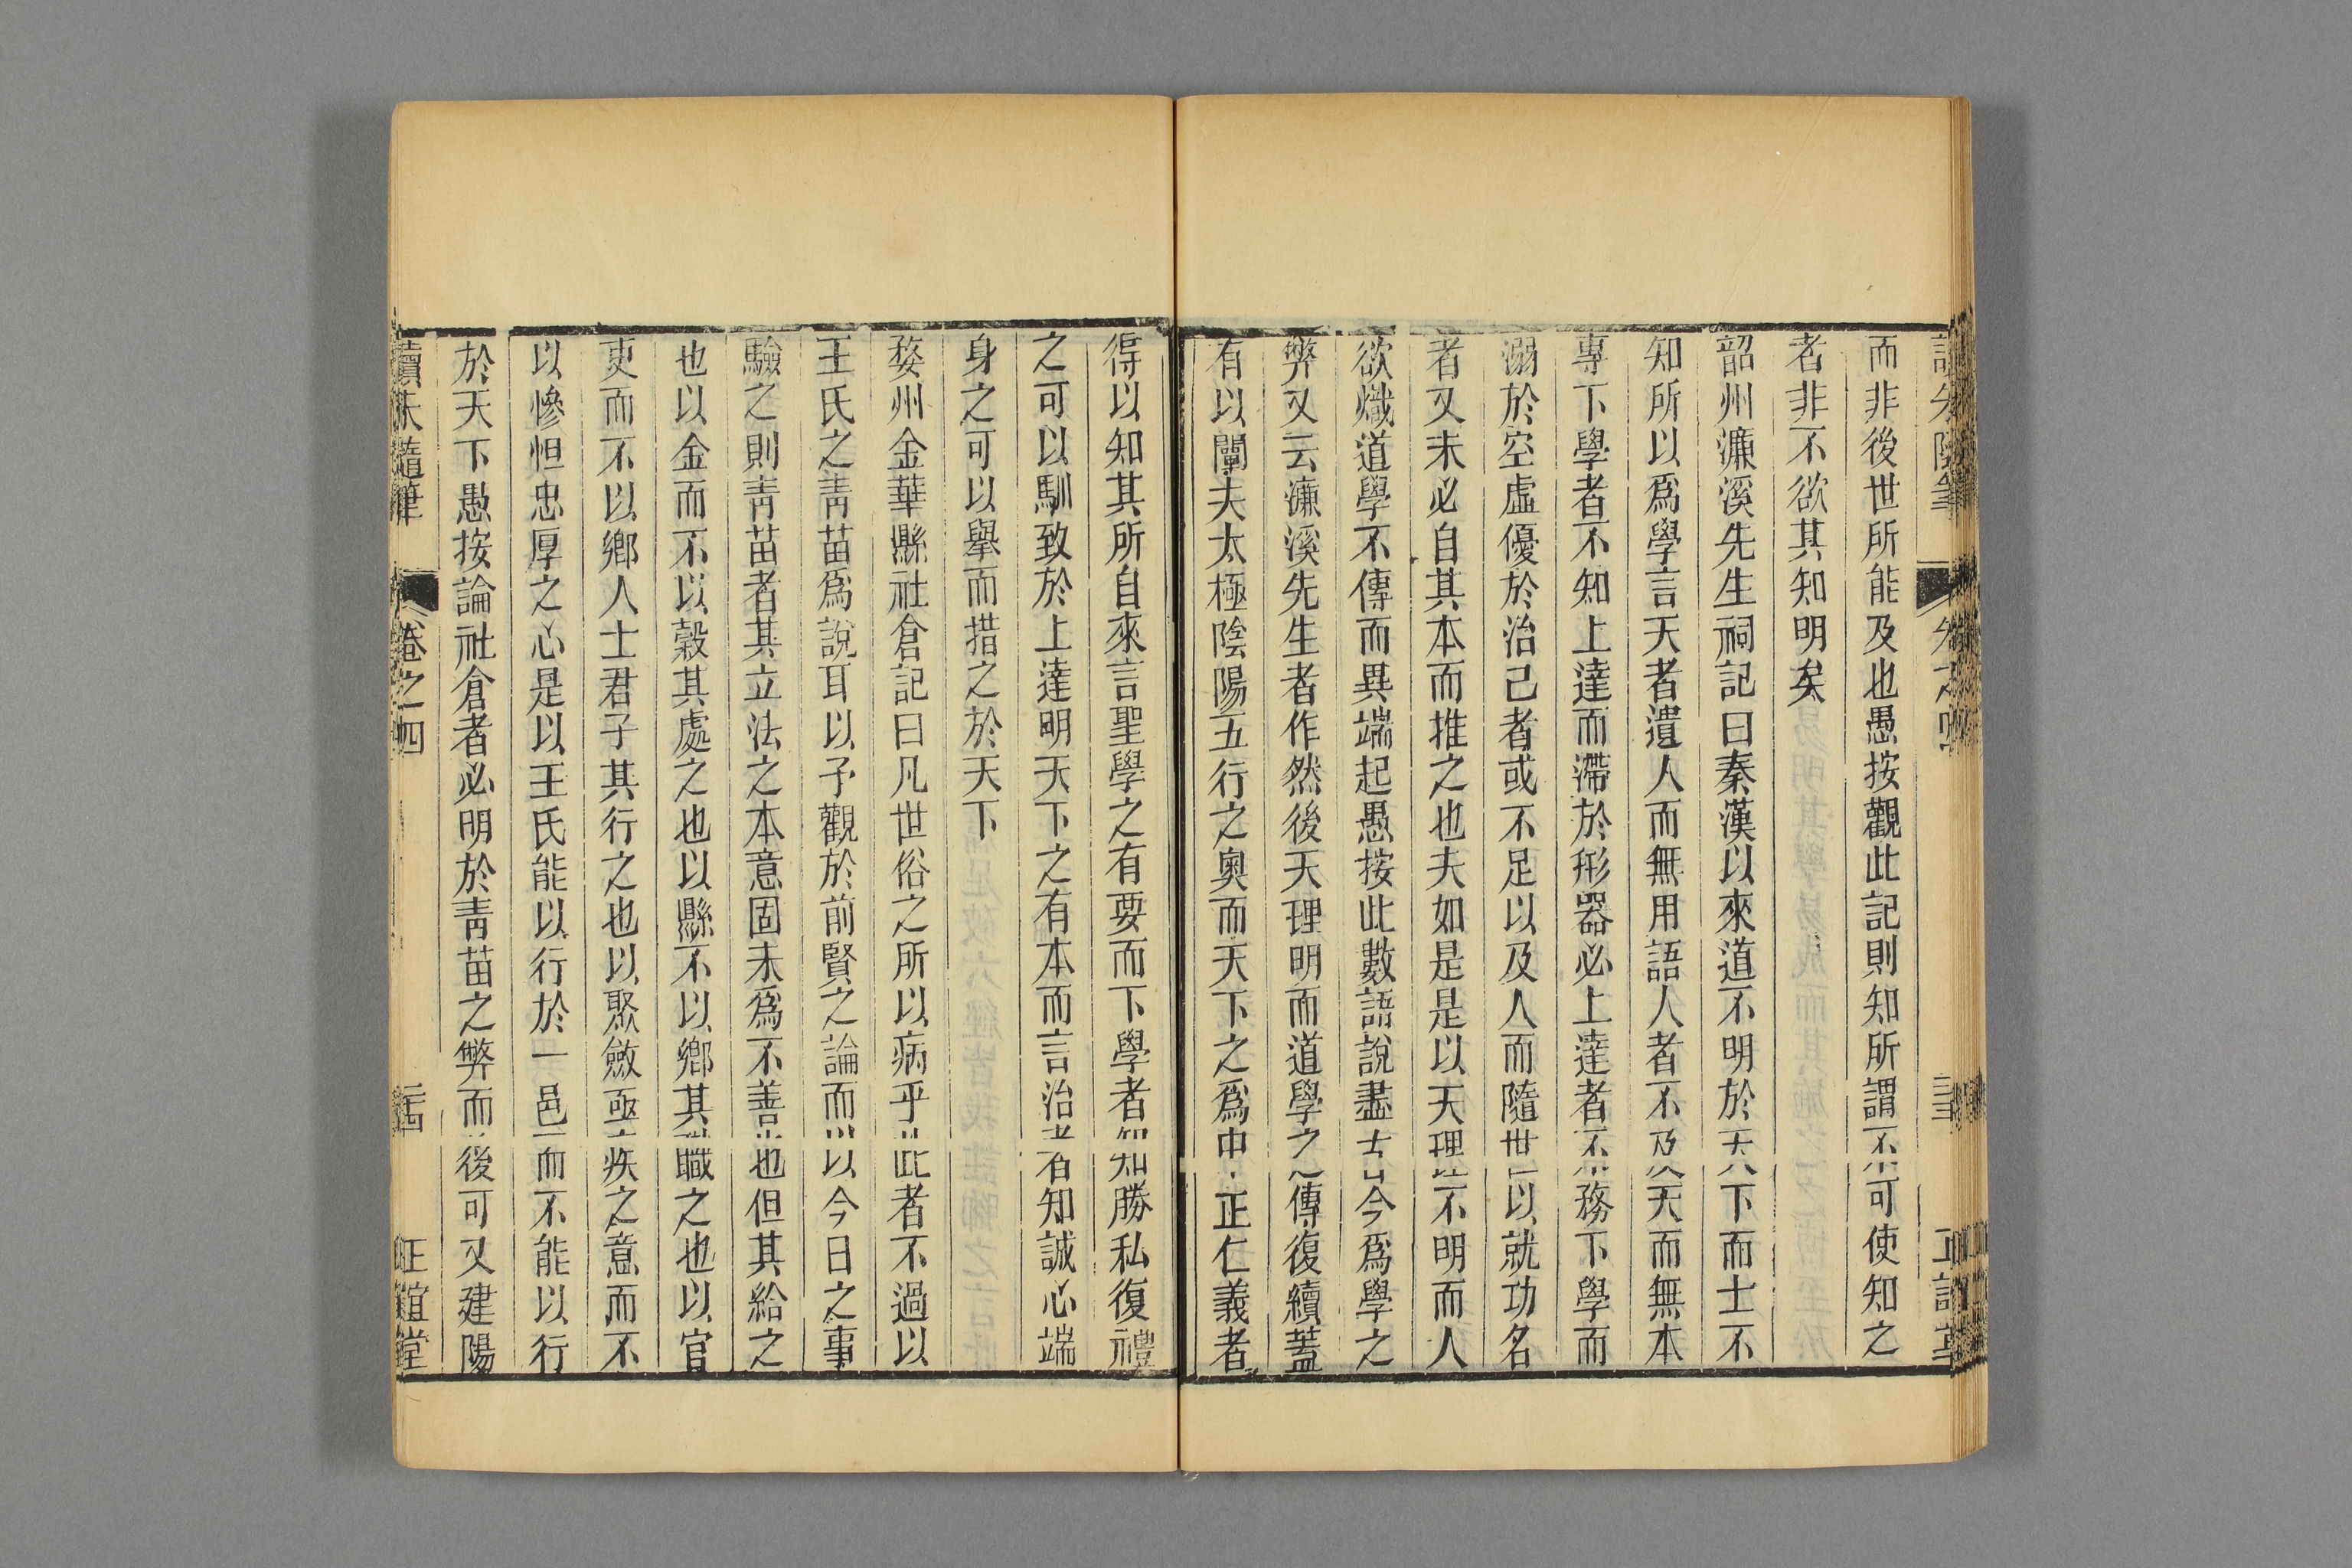 而非後世所能及也愚按觀此記則知所謂不可使知之
者非不欲其知明矣
韶州濂溪先生祠記曰秦漢以來道不明於天下而士不
知所以爲學言天者遺人而無用語人者不及天而無本
專下學者不知上達而滯於形器必上達者不務下學而
溺於空虛優於治己者或不足以及人而隨世以就功名
者又未必自其本而推之也夫如是是以天理不明而人
欲熾道學不傳而異端起愚按此數語說盡古今爲學之
弊又云濂溪先生者作然後天理明而道學之傳復續蓋
有以闡夫太極陰陽五行之奧而天下之爲中正仁義者
得以知其所自來言聖學之有要而下學者知勝私復禮
之可以馴致於上達明天下之有本而言治者知誠心端
身之可以舉而措之於天下
婺州金華縣社倉記曰凡世俗之所以病乎此者不過以
王氏之青苗爲說耳以予觀於前賢之論而以今日之事
驗之則青苗者其立法之本意固未爲不善也但其給之
也以金而不以穀其處之也以縣不以鄉其職之也以官
吏而不以鄉人士君子其行之也以聚斂亟疾之意而不
以慘怛忠厚之心是以王氏能以行於一邑而不能以行
於天下愚按論社倉者必明於青苗之弊而後可又建陽
讀朱隨筆 卷之四 正誼堂